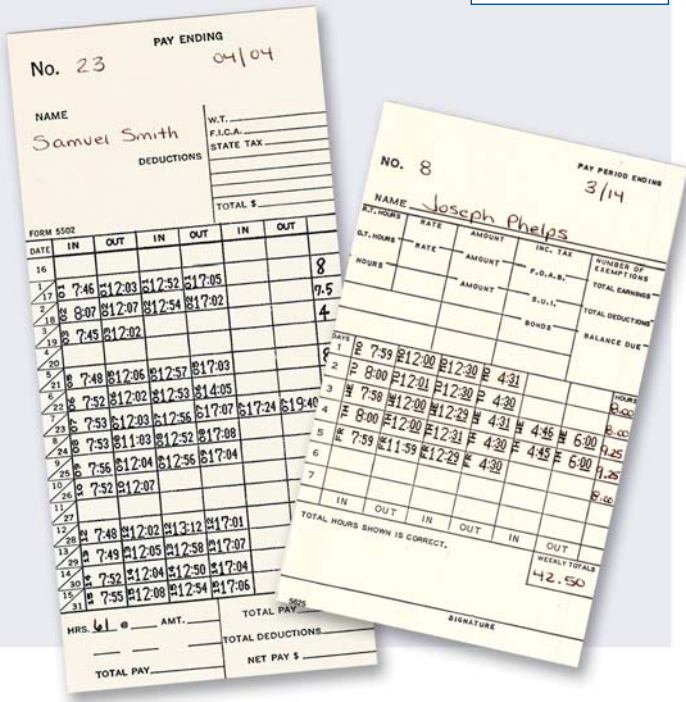 PAY ENDING
No. 23 04/04
NAME
Samuel Smith
DEDUCTIONS
W.T.
F.I.C.A.
STATE TAX
TOTAL $
FORM 5502
DATE IN OUT IN OUT IN OUT
16
1/17 01 7:46 12:03 12:52 17:05 8
2/18 02 8:07 12:07 12:54 17:02 7.5
3/19 03 7:45 12:02 4
4/20
5/21 7:48 12:06 12:57 17:03
6/22 7:52 12:02 12:53 14:05
7/23 07 7:53 12:03 12:56 17:07 17:24 19:40
8/24 08 7:53 11:03 12:52 17:08
9/25 09 7:56 12:04 12:56 17:04
10/26 10 7:52 12:07
11/27
12/28 12 7:48 12:02 13:12 17:01
13/29 13 7:49 12:05 12:58 17:07
14/30 14 7:52 12:04 12:50 17:04
15/31 15 7:55 12:08 12:54 17:06
HRS. 61 @ AMT.
TOTAL PAY
TOTAL PAY
TOTAL DEDUCTIONS
NET PAY $
NO. 8
PAY PERIOD ENDING
3/14
NAME Joseph Phelps
R.T. HOURS RATE AMOUNT INC. TAX NUMBER OF EXEMPTIONS
O.T. HOURS RATE AMOUNT F.O.A.B. TOTAL EARNINGS
HOURS AMOUNT S.U.I. TOTAL DEDUCTIONS
BONDS BALANCE DUE
DAYS HOURS
1 MO 7:59 MO 12:00 MO 12:30 MO 4:31 8.00
2 TU 8:00 12:01 12:30 TU 4:30 8.00
3 WE 7:58 WE 12:00 WE 12:29 WE 4:31 WE 4:46 WE 6:00 9.25
4 TH 8:00 TH 12:00 TH 12:31 TH 4:30 TH 4:45 TH 6:00 9.25
5 FR 7:59 FR 11:59 FR 12:29 FR 4:30 8.00
6
7
IN OUT IN OUT IN OUT
TOTAL HOURS SHOWN IS CORRECT.
WEEKLY TOTALS
42.50
5625
SIGNATURE